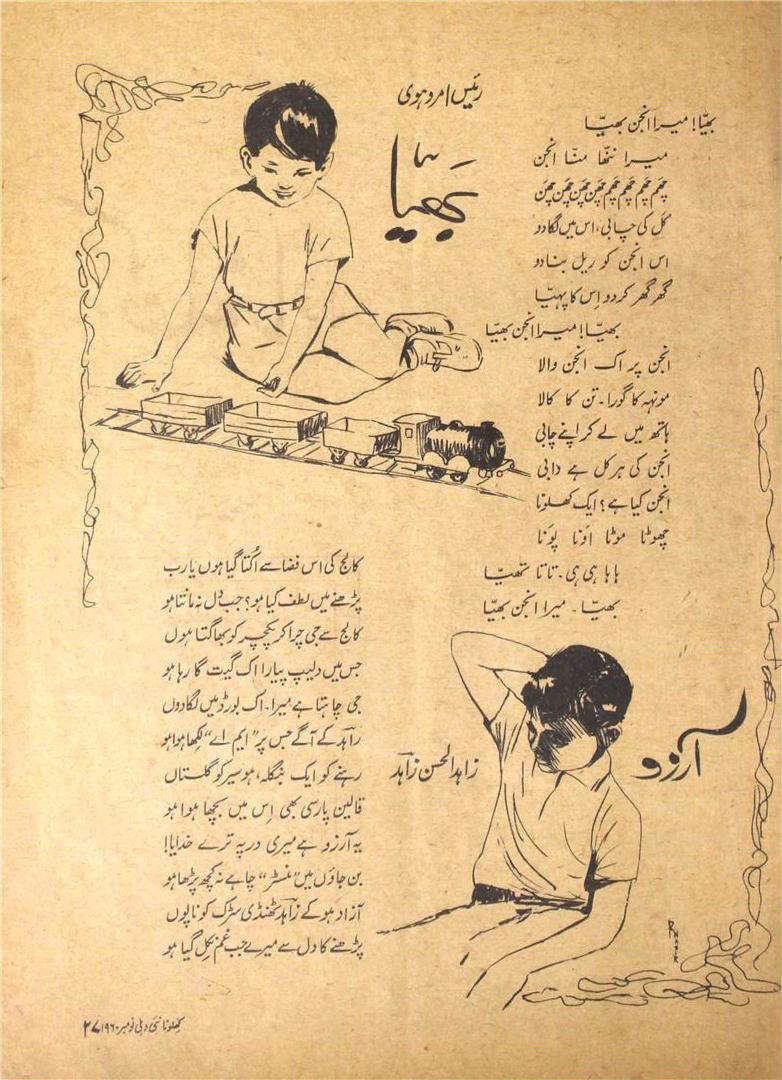 رئیس امروہوی
بھیّا
بھیّا! میرا انجن بھیّا
میرا ننھّا منّا انجن
چھم چھم چھم چھم چھن چھن چھن چھن
کل کی چابی، اس میں لگا دو
اس انجن کو ریل بنا دو
گھر گھر کر دو اِس کا پہیّا
بھیّا! میرا انجن بھیّا
انجن پر اک انجن والا
مونہہ کا گورا۔ تن کا کالا
ہاتھ میں لے کر اپنے چابی
انجن کی ہر کل ہے دابی
انجن کیا ہے؟ ایک کھلونا
چھوٹا موٹا اَونا پَونا
ہاہا ہی ہی۔ تا تا تھیّا
بھیّا۔ میرا انجن بھیّا
آرزو
زاہد الحسن زاہد
کالج کی اس فضا سے اُکتا گیا ہوں یارب
پڑھنے میں لطف کیا ہو؟ جب دل نہ مانتا ہو
کالج سے جی چرا کر پکچر کو بھاگتا ہوں
جس میں دلیپ پیارا اک گیت گا رہا ہو
جی چاہتا ہے میرا۔ اک بورڈ میں لگا دوں
زاہد کے آگے جس پر "ایم اے" لکھا ہوا ہو
رہنے کو ایک بنگلہ، ہو سیر کو گلستاں
قالین پارسی بھی اِس میں بچھا ہوا ہو
یہ آرزو ہے میری در پہ ترے خدایا!
بن جاؤں میں "منسٹر" چاہے نہ کچھ پڑھا ہو
آزاد ہو کے زاہد ٹھنڈی سڑک کو ناپوں
پڑھنے کا دل سے میرے جب غم نکل گیا ہو
کھلونا نئی دہلی نومبر ۱۹۶۰ ۲۷